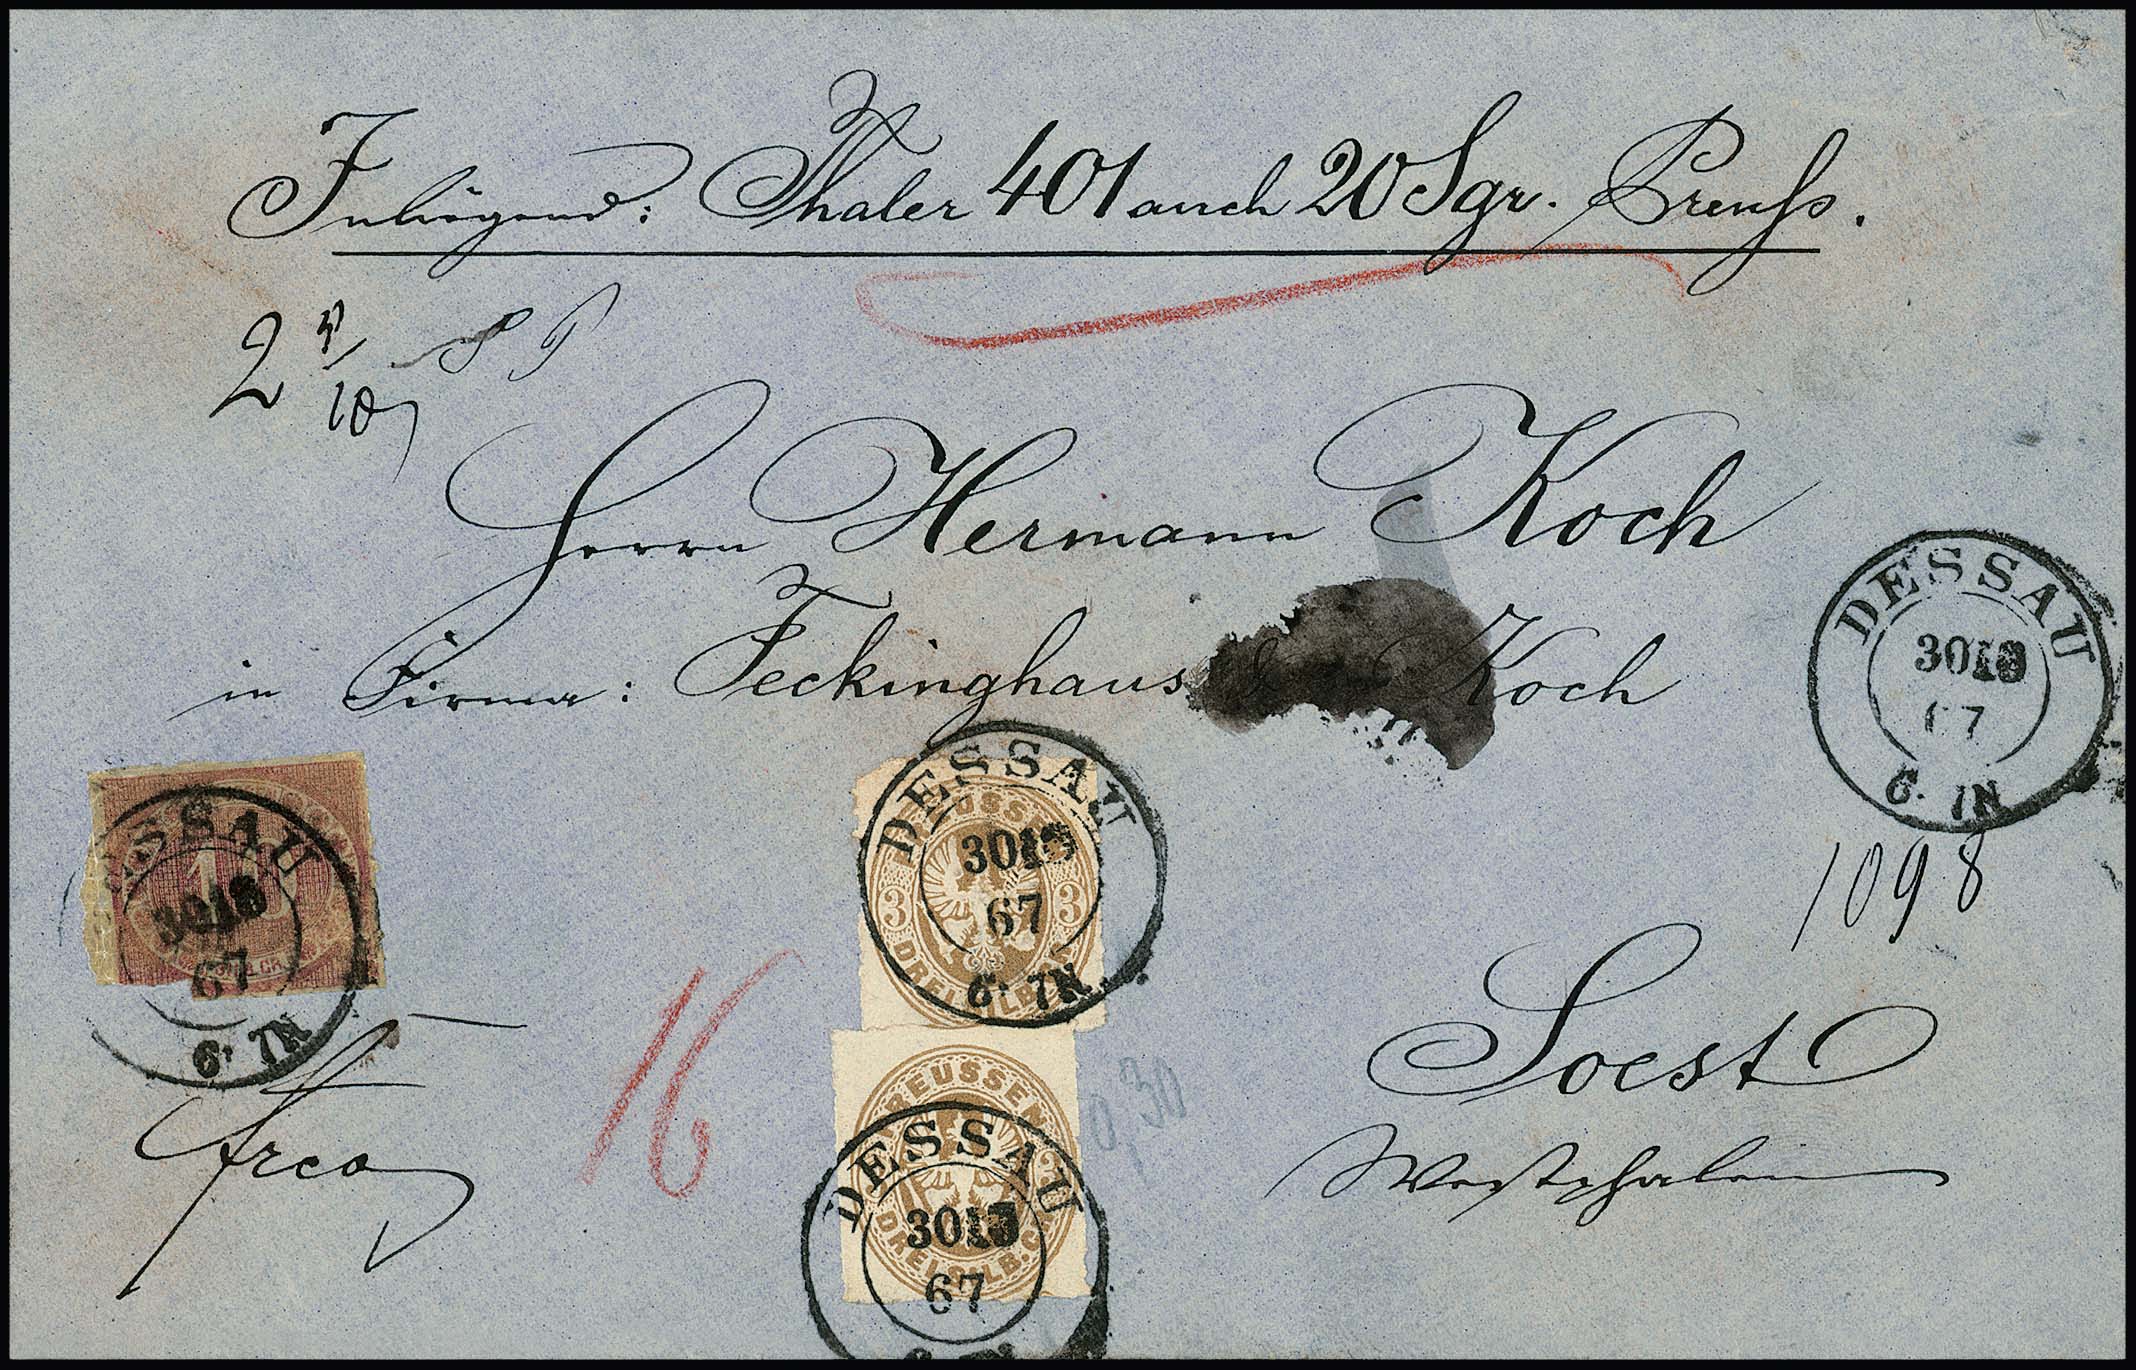 Inliegend: Thaler 401 auch 20 Sgr. Preuß.
2
10
Herrn Hermann Koch
in Firma: Teckinghaus & Koch
DESSAU
30
67
6-7N
1098
10
ESSAU
30
67
6-7N
PREUSSEN
3 3
DREI SILB. GR.
DESSAU
30
67
6-7N
16
Soest
Westphalen
frco
PREUSSEN
DREI SILB. GR.
DESSAU
30
67